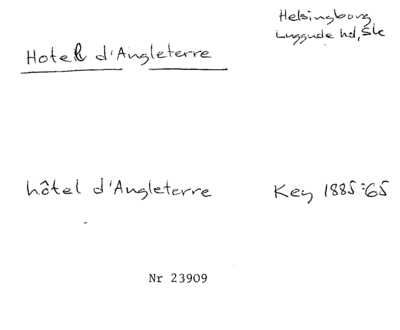 Helsingborg
Luggude hd, Sk
Hotell d'Angleterre
hôtel d'Angleterre Key 1885:65
Nr 23909